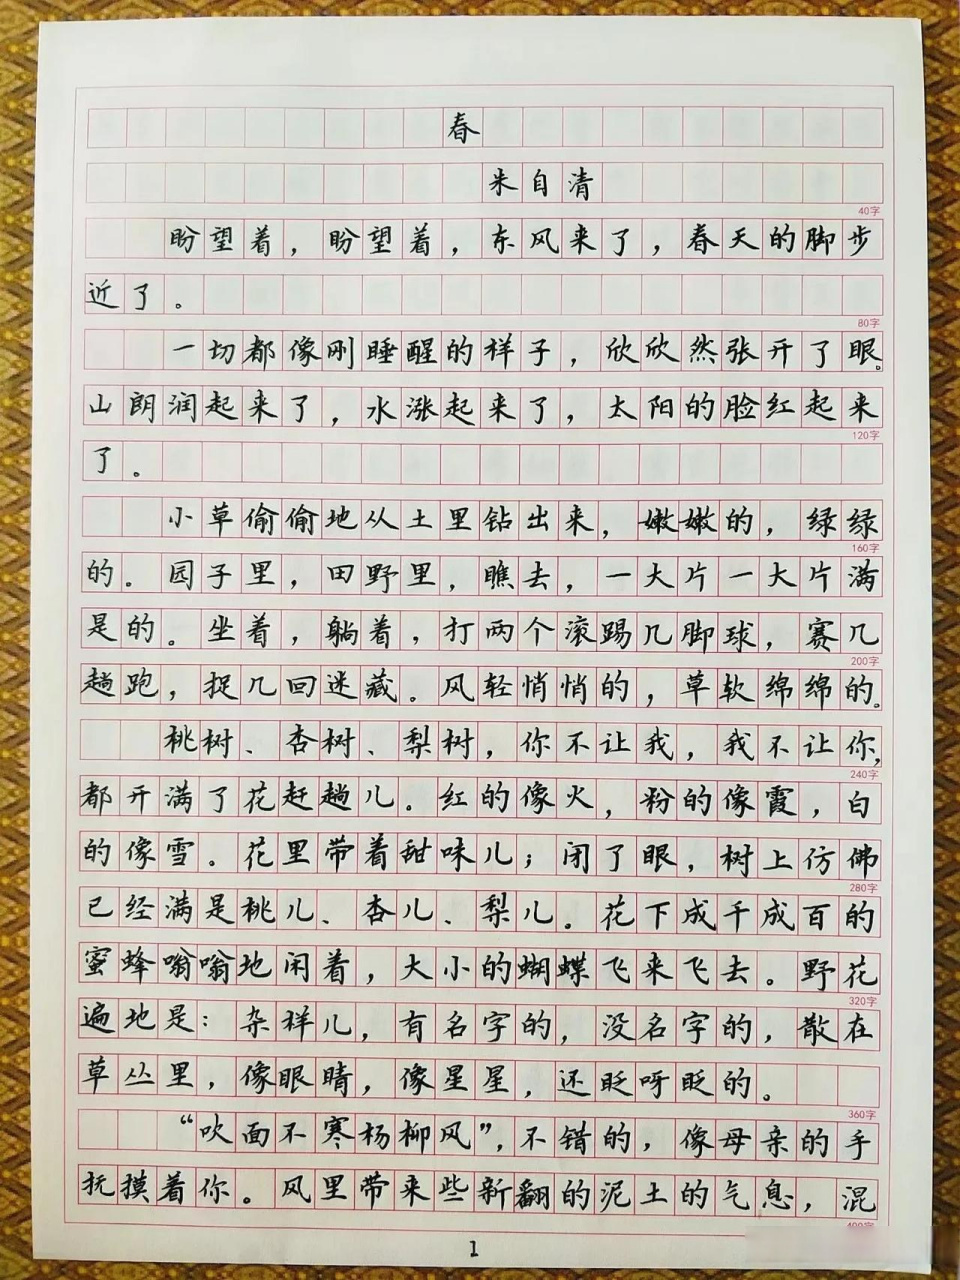 春
朱自清
40字
盼望着，盼望着，东风来了，春天的脚步
近了。
80字
一切都像刚睡醒的样子，欣欣然张开了眼。
山朗润起来了，水涨起来了，太阳的脸红起来
120字
了。
小草偷偷地从土里钻出来，嫩嫩的，绿绿
160字
的。园子里，田野里，瞧去，一大片一大片满
是的。坐着，躺着，打两个滚踢几脚球，赛几
200字
趟跑，捉几回迷藏。风轻悄悄的，草软绵绵的。
桃树、杏树、梨树，你不让我，我不让你，
240字
都开满了花赶趟儿。红的像火，粉的像霞，白
的像雪。花里带着甜味儿；闭了眼，树上仿佛
280字
已经满是桃儿、杏儿、梨儿。花下成千成百的
蜜蜂嗡嗡地闹着，大小的蝴蝶飞来飞去。野花
320字
遍地是：杂样儿，有名字的，没名字的，散在
草丛里，像眼睛，像星星，还眨呀眨的。
360字
“吹面不寒杨柳风”，不错的，像母亲的手
抚摸着你。风里带来些新翻的泥土的气息，混
400字
1